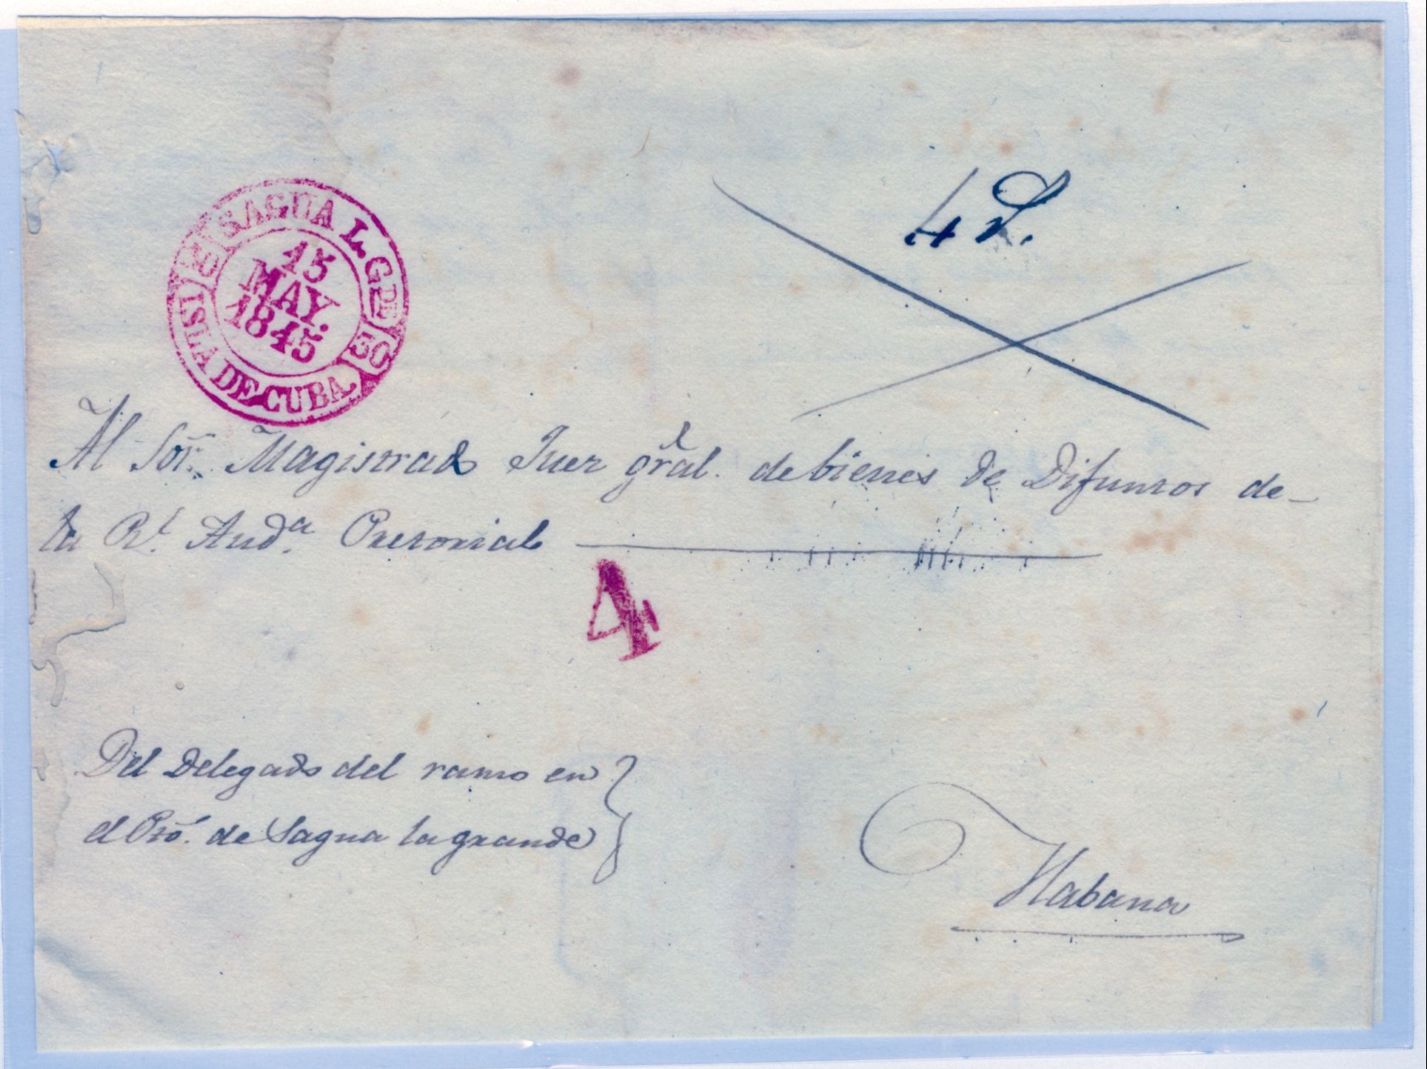 4 R.
SAGUA L. GDE
15
MAY.
1845
30
ISLA DE CUBA
30
Al Sor. Magistrad Juez gral. de bienes de Difuntos de
la Rl. Auda. Pretorial
4
Del Delegado del ramo en
el Pto. de Sagua la grande
Habana